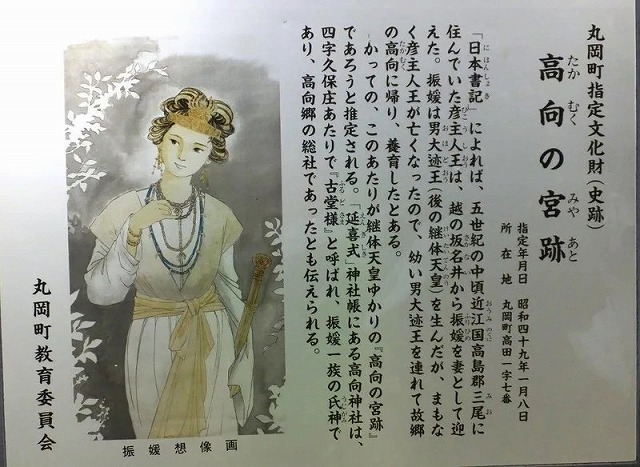 丸岡町指定文化財(史跡)
高向の宮跡
たか むく みや あと
指定年月日 昭和四十九年一月八日
所在地 丸岡町高田一字七番
「日本書記」によれば、五世紀の中頃近江国高島郡三尾に
住んでいた彦主人王は、越の坂名井から振媛を妻として迎
えた。振媛は男大迹王(後の継体天皇)を生んだが、まもな
く彦主人王が亡くなったので、幼い男大迹王を連れて故郷
の高向に帰り、養育したとある。
かっての、このあたりが継体天皇ゆかりの『高向の宮跡』
であろうと推定される。「延喜式」神社帳にある高向神社は、
四字久保庄あたりで『古堂様』と呼ばれ、振媛一族の氏神で
あり、高向郷の総社であったとも伝えられる。
丸岡町教育委員会
振媛想像画